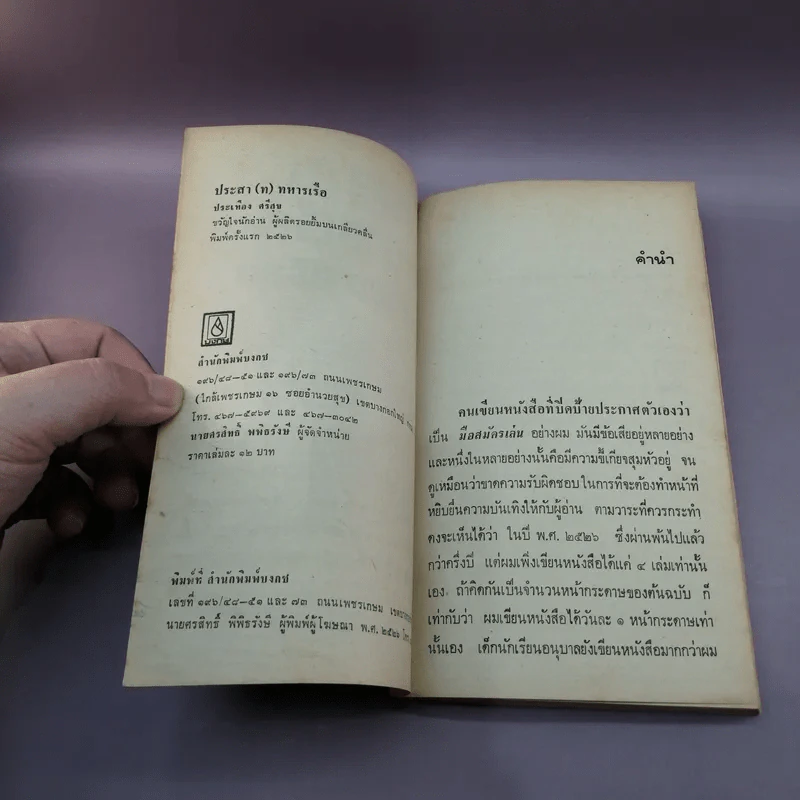 ประสา (ท) ทหารเรือ
ประเทือง ศรีสุข
ขวัญใจนักอ่าน ผู้ผลิตรอยยิ้มบนเกลียวคลื่น
พิมพ์ครั้งแรก ๒๕๒๖
บงกช
สำนักพิมพ์บงกช
๑๙๖/๔๘–๕๑ และ ๑๙๖/๗๓ ถนนเพชรเกษม
(ใกล้เพชรเกษม ๑๖ ซอยอำนวยสุข) เขตบางกอกใหญ่
โทร. ๔๖๗–๕๙๖๙ และ ๔๖๗–๓๐๔๒
นายศรสิทธิ์ พพิธรังษี ผู้จัดจำหน่าย
ราคาเล่มละ ๑๒ บาท
พิมพ์ที่ สำนักพิมพ์บงกช
เลขที่ ๑๙๖/๔๘–๕๑ และ ๗๓ ถนนเพชรเกษม
นายศรสิทธิ์ พิพิธรังษี ผู้พิมพ์ผู้โฆษณา พ.ศ. ๒๕๒๖
คำนำ
คนเขียนหนังสือที่ปิดป้ายประกาศตัวเองว่า
เป็น มือสมัครเล่น อย่างผม มันมีข้อเสียอยู่หลายอย่าง
และหนึ่งในหลายอย่างนั้นคือมีความขี้เกียจสุมหัวอยู่ จน
ดูเหมือนว่าขาดความรับผิดชอบในการที่จะต้องทำหน้าที่
หยิบยื่นความบันเทิงให้กับผู้อ่าน ตามวาระที่ควรกระทำ
คงจะเห็นได้ว่า ในปี พ.ศ. ๒๕๒๖ ซึ่งผ่านพ้นไปแล้ว
กว่าครึ่งปี แต่ผมเพิ่งเขียนหนังสือได้แค่ ๔ เล่มเท่านั้น
เอง ถ้าคิดกันเป็นจำนวนหน้ากระดาษของต้นฉบับ ก็
เท่ากับว่า ผมเขียนหนังสือได้วันละ ๑ หน้ากระดาษเท่า
นั้นเอง เด็กนักเรียนอนุบาลยังเขียนหนังสือมากกว่าผม